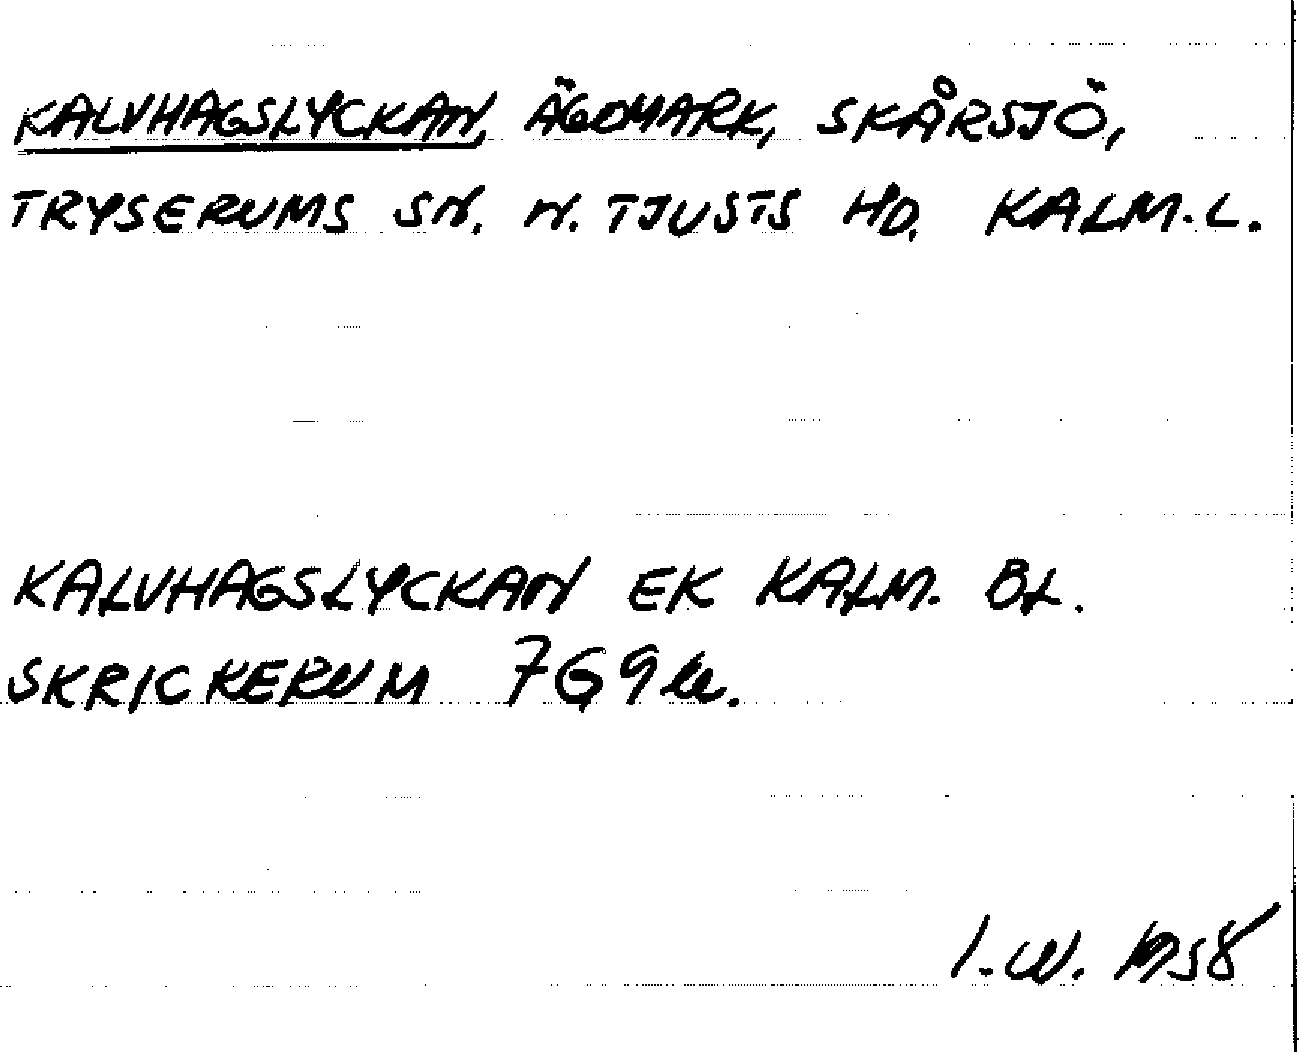 KALVHAGSLYCKAN, ÄGOMARK, SKÅRSJÖ,
TRYSERUMS SN. N. TJUSTS HD. KALM. L.
KALVHAGSLYCKAN EK KALM. BL.
SKRICKERUM 7G9
I.W. 1958